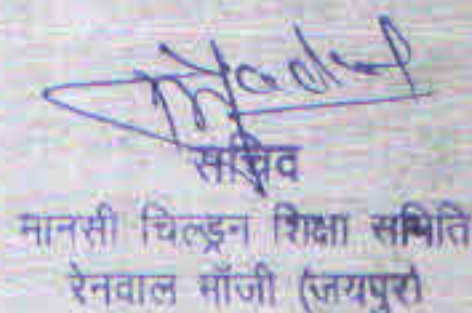 सचिव
मानसी चिल्ड्रन शिक्षा समिति
रेनवाल माँजी (जयपुर)